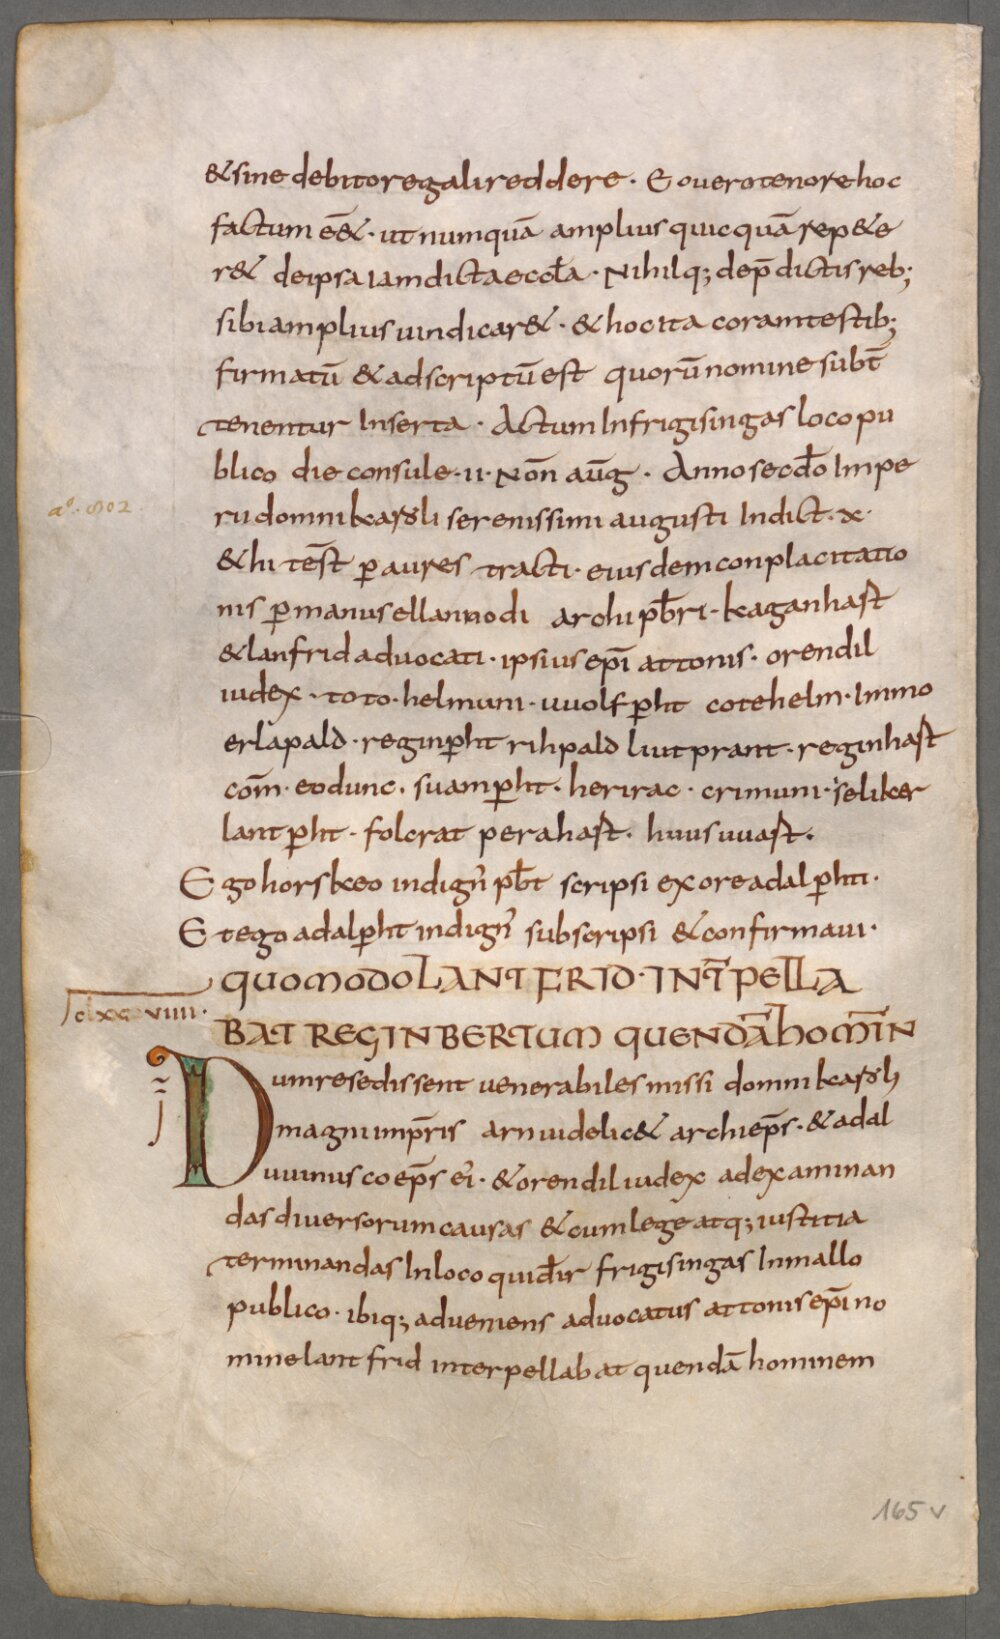 & sine debito regali reddere · Eo uero tenore hoc
factum eē& · ut numquā amplius quicquā rep&e
r& de ipsa iam dicta eccła · Nihilq; de p̄dictis reb;
sibi amplius uindicar& · & hoc ita coram testib;
firmatū & adscriptū est quorū nomine subt̄
tenentur Inserta · Actum In frigisingas loco pu
blico die consule · ii · Noñ aūg · Anno secdo Impe
rii domni karoli serenissimi augusti Indict · x ·
& hi test̄ ꝑ aures tracti · eiusdem conplacitatio
nis ꝑ manus ellannodi archi pb̄ri · kaganhast
& lanfrid aduocati · ipsius ep̄i attonis · orendil
iudex · toto · helmuni · uuolfꝑht cotehelm · Immo
erlapald · reginꝑht rihpald liutprant · reginhast
com̄ · eodunc · suamꝑht · herirac · crimuni · seliker
lantꝑht · folcrat perahast · huusuuast ·
Ego horskeo indigñ pb̄t scripsi ex ore adalꝑhti ·
Et ego adalꝑht indigñ subscripsi & confirmaui ·
QUOMODO LANTFRID · INT̄PELLA
clxxxviiii ·
BAT REGINBERTUM QUENDĀ HOMĪN
Dum resedissent uenerabiles missi domni karoli
magni imp̄ris arn uidelic& archiep̄s · & adal
uuinus coep̄s ei · & orendil iudex ad examinan
das diuersorum causas & cum lege atq; iustitia
terminandas In loco qui dr̄ frigisingas In mallo
publico · ibiq; adueniens aduocatus attonis ep̄i no
mine lantfrid interpellabat quendā hominem
aº. 802.
165 v